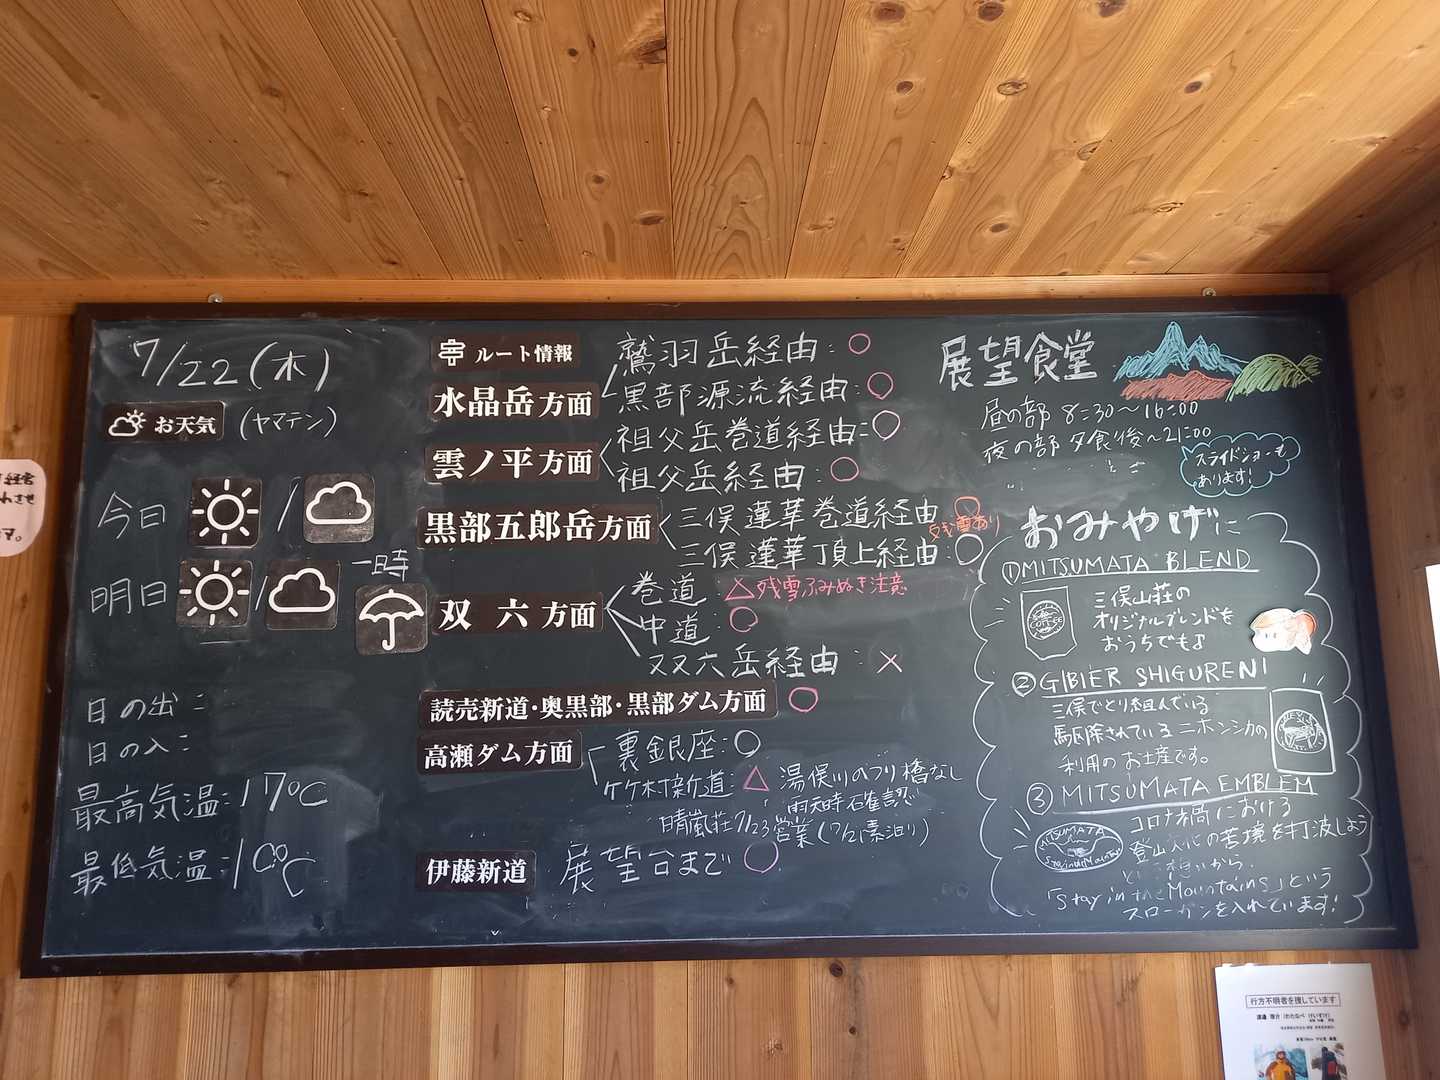 7/22(木)
お天気 (ヤマテン)
今日 /
明日 / 一時
日の出:
日の入:
最高気温:17℃
最低気温:10℃
ルート情報
水晶岳方面
鷲羽岳経由:○
黒部源流経由:○
雲ノ平方面
祖父岳巻道経由:○
祖父岳経由:○
黒部五郎岳方面
三俣蓮華巻道経由 ○
残雪あり
三俣蓮華頂上経由:○
双六方面
巻道 △残雪ふみぬき注意
中道:○
双六岳経由:×
読売新道・奥黒部・黒部ダム方面 ○
高瀬ダム方面
裏銀座:○
竹村新道:△ 湯俣川のつり橋なし
雨天時確認
晴嵐荘7/23営業(7/21素泊り)
伊藤新道 展望台まで ○
展望食堂
昼の部 8:30〜16:00
夜の部 夕食後〜21:00
スライドショーも
あります!
おみやげに
①MITSUMATA BLEND
三俣山荘の
オリジナルブレンドを
おうちでも♪
COFFEE
②GIBIER SHIGURENI
三俣でとり組んでいる
駆除されているニホンジカの
利用のお土産です。
③MITSUMATA EMBLEM
MITSUMATA
コロナ禍における
登山文化の苦境を打破しよう
という想いから、
「Stay in the Mountains」という
スローガンを入れています!
行方不明者を捜しています